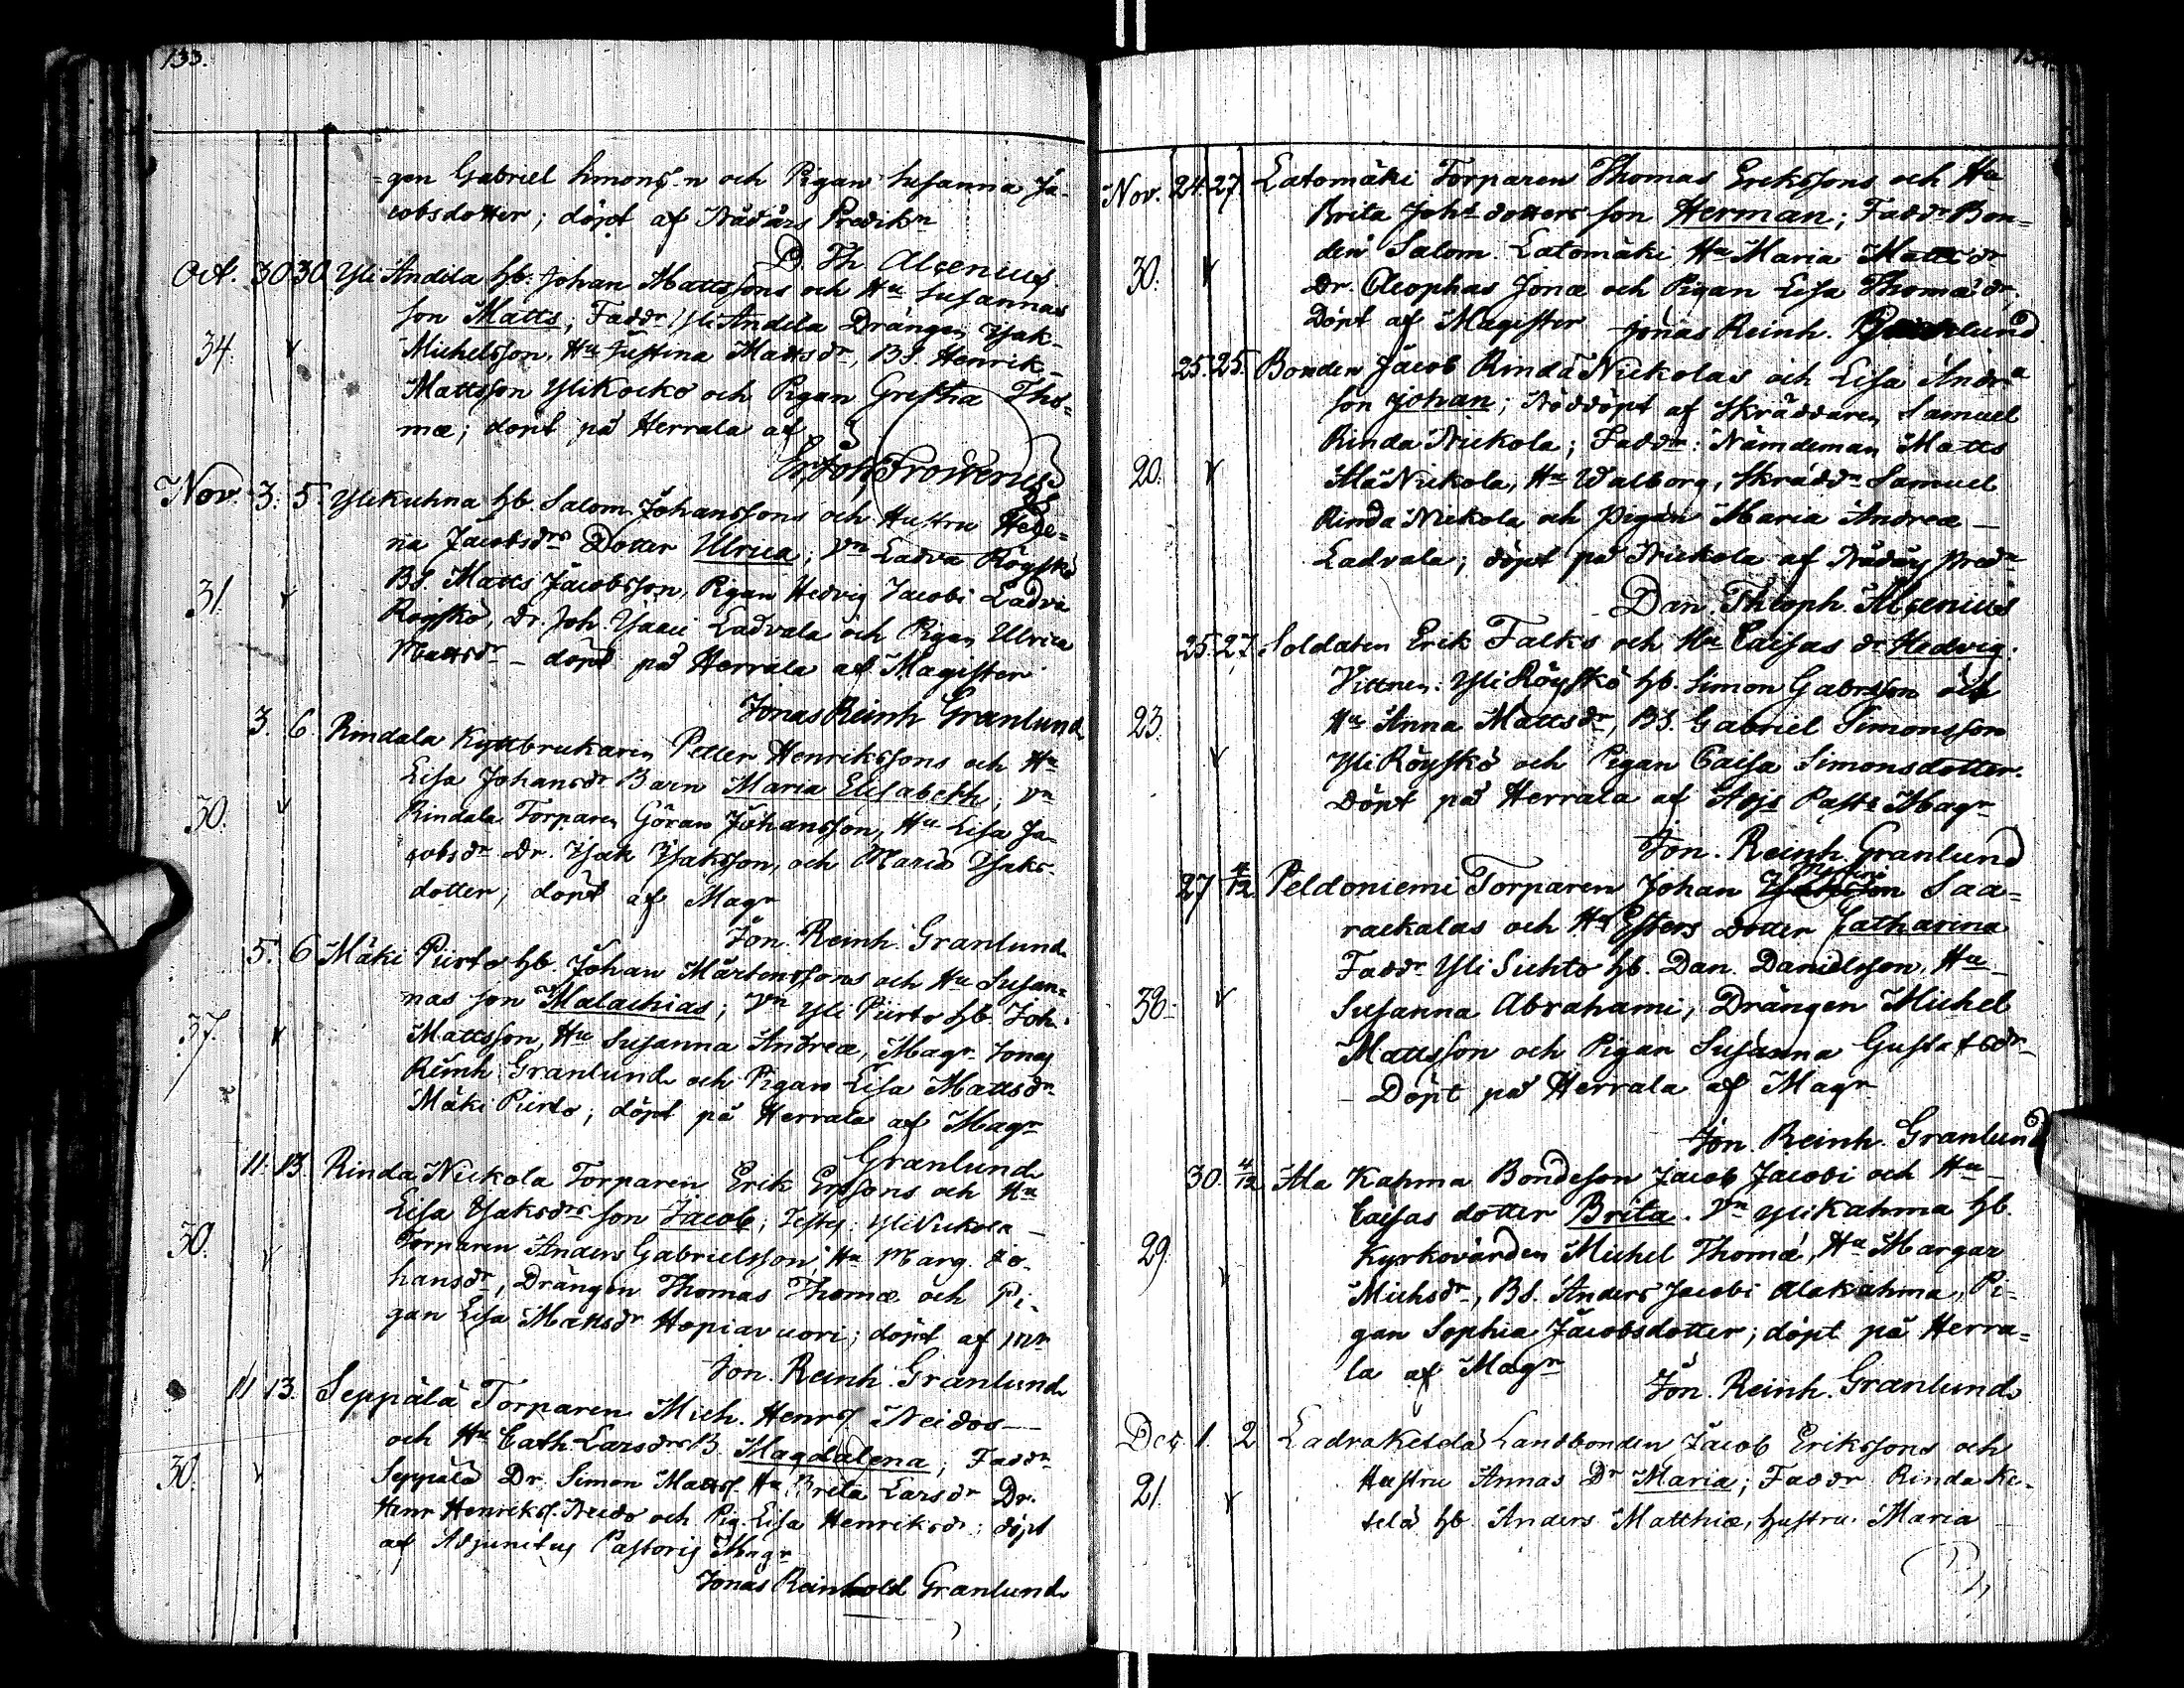 133.
gen Gabriel Simonss.n och Pigan Susanna Ja-
cobsdotter; döpt af Nådårs Predikn
D. Th. Alcenius.
Oct. 30 30 Yli Andila hb. Johan Mattssons och Hu Susannas
son Matts; Faddr Yli Andila Drängen Isak
34. Michelsson, Hu Justina Mattsdr, BS. Henrik
Mattsson Ylikocko och Pigan Gretha Tho-
mæ; döpt på Herrala af
Er. Joh. Frosterus
Nov. 3. 5. Ylikuhna hb. Salom. Johanssons och Hustru Hele-
na Jacobsdrs Dotter Ulrica; Vn Ladva Röyskö
31. BS. Matts Jacobsson, Pigan Hedvig Jacobi Ladva
Röyskö, Dr. Joh. Isaci Ladvala och Pigan Ulrica
Mattsdr – döpt på Herrala af Magister
Jonas Reinh Granlund
3. 6. Rindala Kyttbrukaren Petter Henrikssons och Hu
Lisa Johansdr Barn Maria Elisabeth; Vn
30. Rindala Torparen Göran Johansson, Hu Lisa Ja-
cobsdr Dr. Isak Isaksson, och Maria Isaks-
dotter; döpt af Magr
Jon. Reinh. Granlund
5. 6 Mäki Piirto hb. Johan Mårtenssons och Hu Susan-
nas son Malachias; Vn Yli Piirto hb. Joh.
37. Mattsson, Hu Susanna Andreæ, Magr Jonas
Reinh. Granlund och Pigan Lisa Mattsdr
Mäki Piirto; döpt på Herrala af Magr
Granlund
11. 13. Rinda Nickola Torparen Erik Erssons och Hu
Lisa Isaksdrs son Jacob; Testes: Yli Nickola
30. Torparen Anders Gabrielsson, Hu Marg. Jo-
hansdr, Drängen Thomas Thomæ och Pi-
gan Lisa Mattsdr Hopiavuori; döpt af Mr
Jon. Reinh. Granlund
11 13. Seppälä Torparen Mich. Henrss Neidos
och Hu Cath. Larsdrs B. Magdalena; Faddr
30. Seppälä Dr. Simon Matts. Hu Brita Larsdr Dr.
Henr Henrikss. Neido och Pig. Lisa Henriksdr; döpt
af Adjunctus Pastoris Magr
Jonas Reinhold Granlund
Nov. 24. 27. Latomäki Torparen Thomas Erikssons och Hu
Brita Johs dotters son Herman; Faddr Bon-
den Salom. Latomäki Hu Maria Mattsdr
30. Dr. Cleophas Jonæ och Pigan Lisa Thomædr;
Döpt af Magister Jonas Reinh. Granlund
25. 25. Bonden Jacob Rinda Nickolas och Lisa Andræ
son Johan; Nöddöpt af Skräddaren Samuel
Rinda Nickola; Faddr: Nämdeman Matts
20. Ala Nickola, Hu Walborg, Skräddr Samuel
Rinda Nickola och Pigan Maria Andreæ
Ladvala; döpt på Nickola af Nådårs Predr
Dan. Theoph. Alcenius
25. 27 Soldaten Erik Falks och Hu Caisas dr Hedvig.
Vittnen: Yli Röyskö hb. Simon Gabrsson och
23. Hu Anna Mattsdr, BS. Gabriel Simonsson
Yli Röyskö och Pigan Caisa Simonsdotter.
Döpt på Herrala af Adjs Pasts Magr
Jon. Reinh. Granlund
27 4/12. Peldoniemi Torparen Johan Saa-
rackalas och Hu Esters dotter Catharina
Faddr Yli Sichto hb. Dan. Danielsson, Hu
38. Susanna Abrahami, Drängen Michel
Mattsson och Pigan Susanna Gustafsdr
– Döpt på Herrala af Magr
Jon Reinh. Granlund
30. 4/12 Ala Kahma Bondeson Jacob Jacobi och Hu
Caisas dotter Brita. Vn Yli Kahma hb.
29. Kyrkovärden Michel Thomæ, Hu Margar
Michsdr, BS. Anders Jacobi Alakahma, Pi-
gan Sophia Jacobsdotter; döpt på Herra-
la af Magr
Jon. Reinh. Granlund
Dec. 1. 2 Ladvaketola Landbonden Jacob Erikssons och
21. Hustru Annas Dr Maria; Faddr Rinda Ke-
tola hb. Anders Matthiæ, hustru Maria